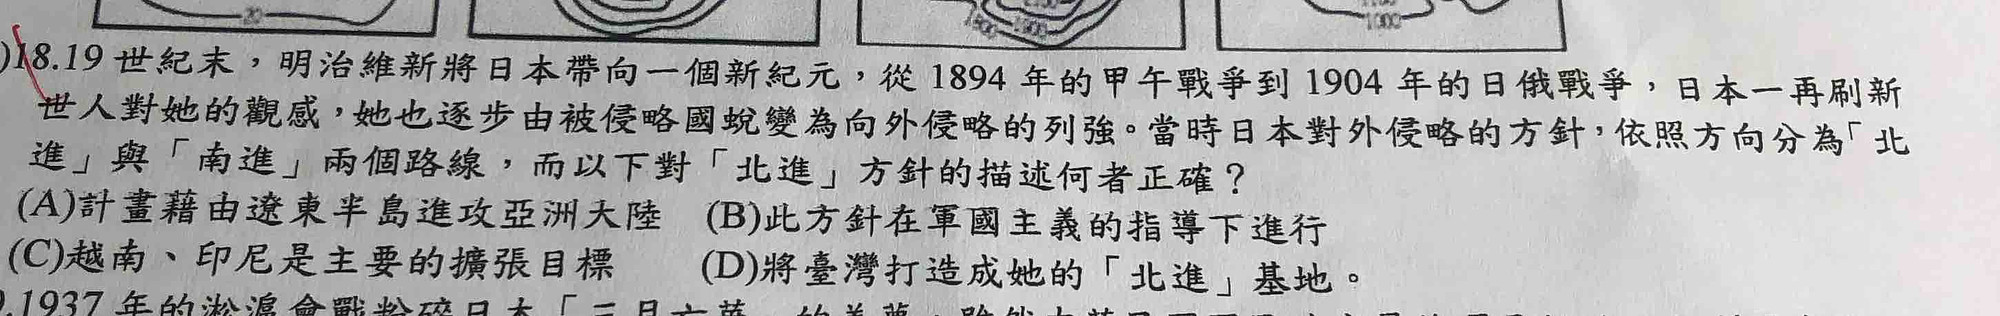 20
1000
)18.19 世紀末，明治維新將日本帶向一個新紀元，從 1894 年的甲午戰爭到 1904 年的日俄戰爭，日本一再刷新
世人對她的觀感，她也逐步由被侵略國蛻變為向外侵略的列強。當時日本對外侵略的方針，依照方向分為「北
進」與「南進」兩個路線，而以下對「北進」方針的描述何者正確？
(A)計畫藉由遼東半島進攻亞洲大陸 (B)此方針在軍國主義的指導下進行
(C)越南、印尼是主要的擴張目標 (D)將臺灣打造成她的「北進」基地。
.1937 年的淞滬會戰粉碎日本「三月亡華